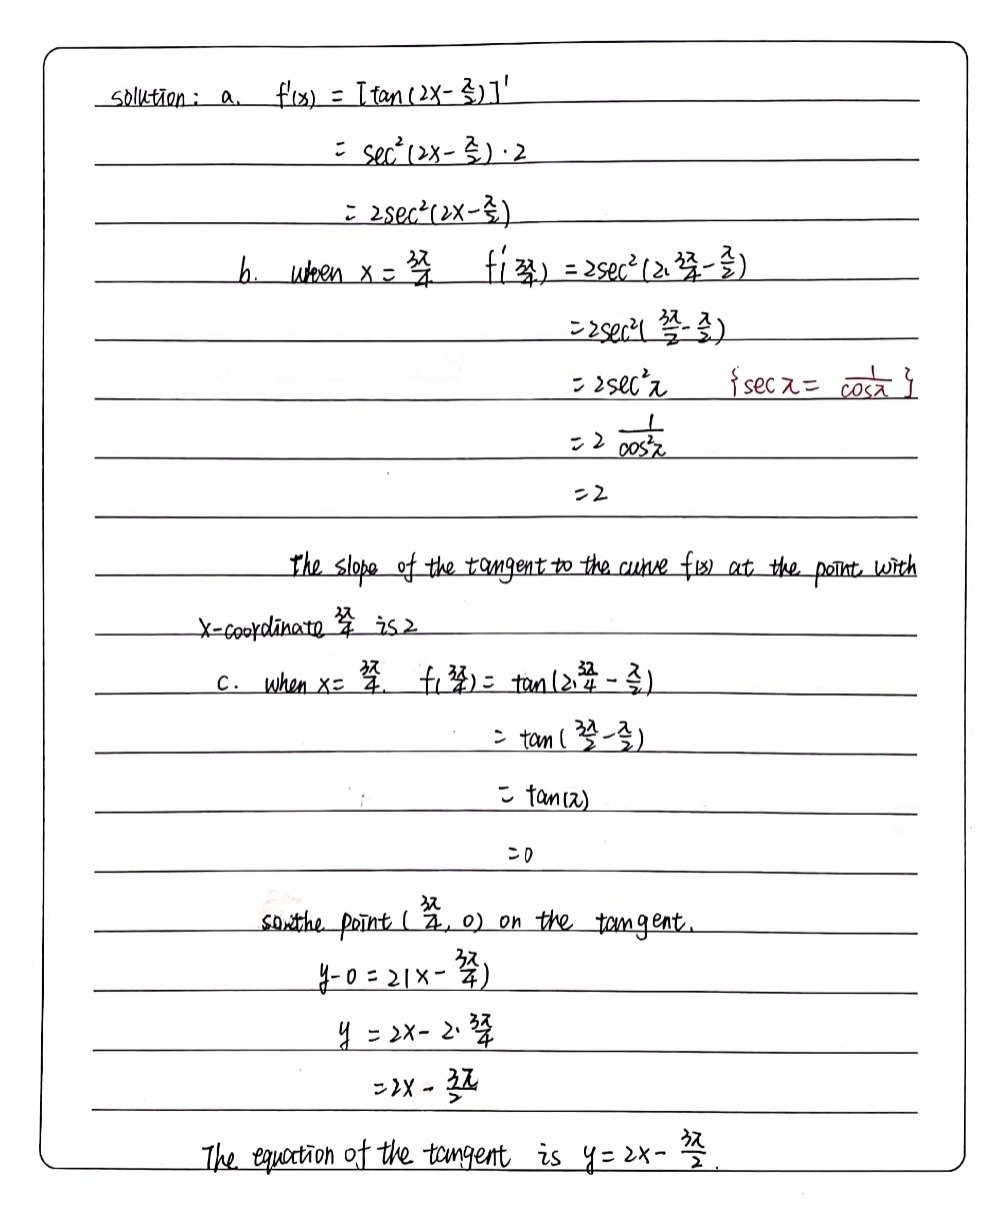 solution: a. f'(x) = [tan(2x-π/2)]'
= sec²(2x-π/2)·2
= 2sec²(2x-π/2)
b. when x = 3π/4 f'(3π/4) = 2sec²(2·3π/4-π/2)
= 2sec²(3π/2-π/2)
= 2sec²π {sec π = 1/cosπ}
= 2 1/cos²π
= 2
The slope of the tangent to the curve f(x) at the point with
x-coordinate 3π/4 is 2
c. when x = 3π/4. f(3π/4) = tan(2·3π/4 - π/2)
= tan(3π/2-π/2)
= tan(π)
= 0
so the point (3π/4, 0) on the tangent.
y-0 = 2(x-3π/4)
y = 2x-2·3π/4
= 2x-3π/2
The equation of the tangent is y = 2x-3π/2.